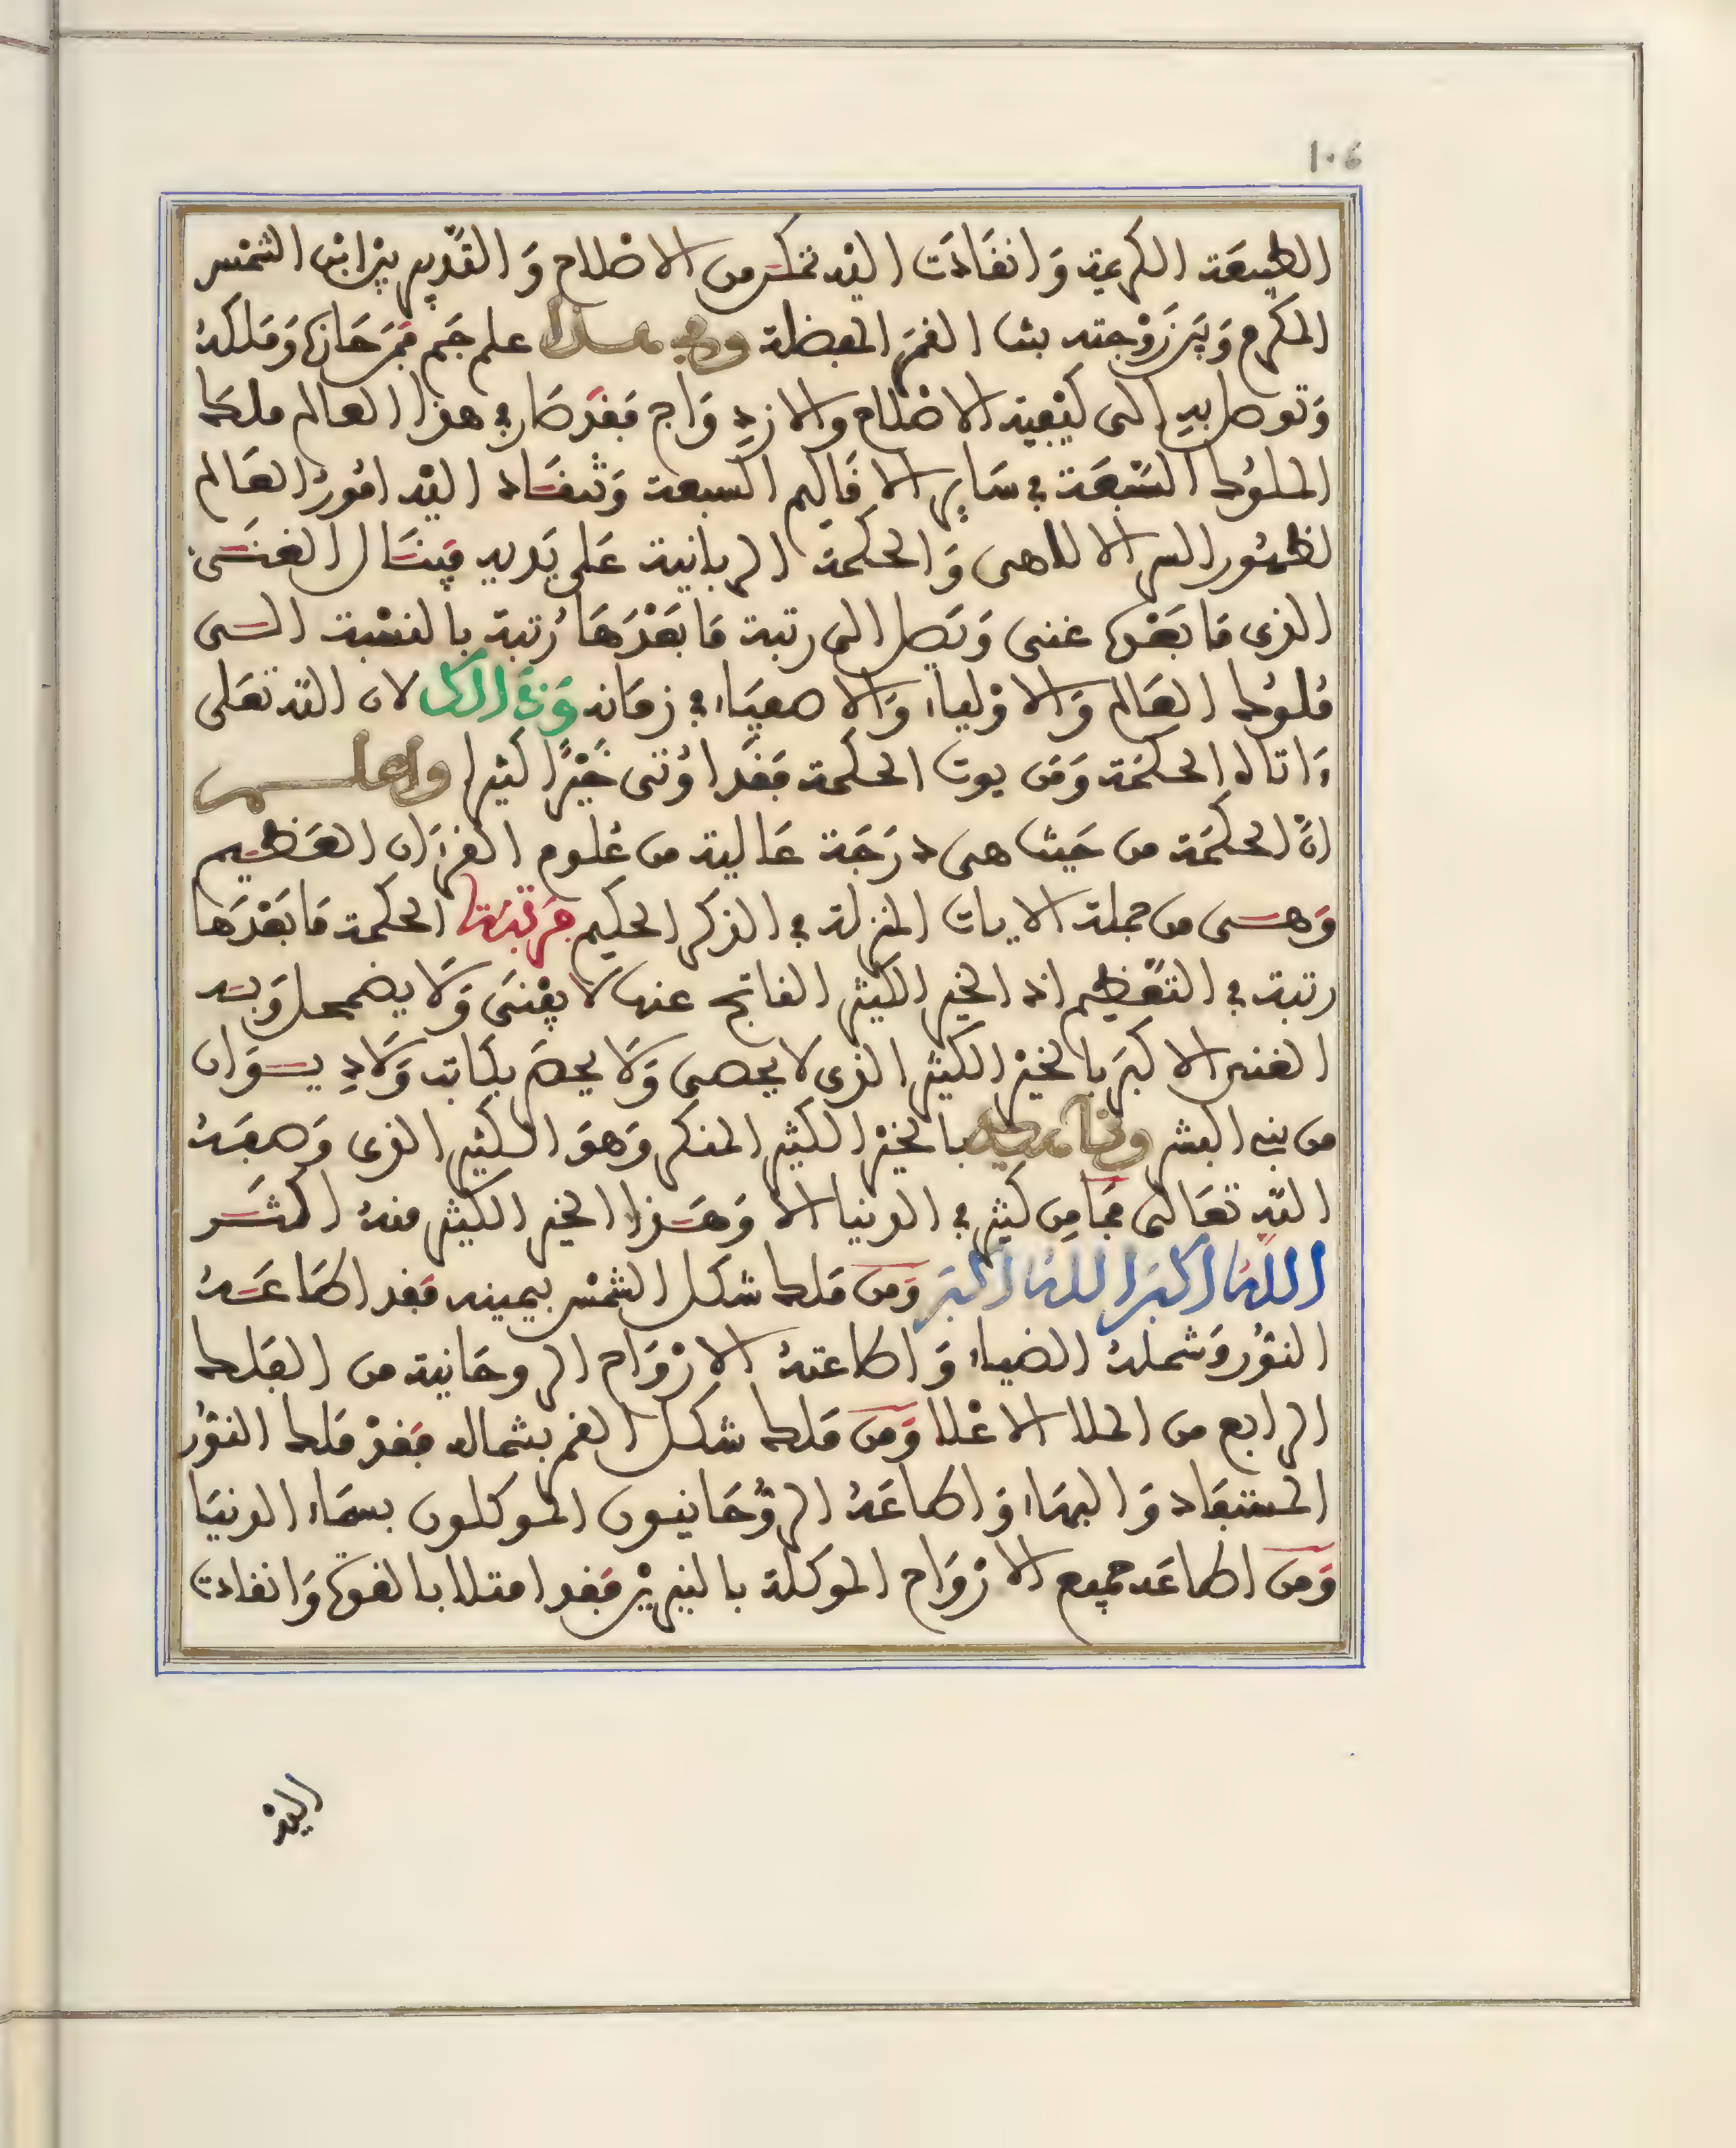 ١٠٤
الطبيعة الكريمة وَانقَادَت اليه تمكن من الاصْلاح وَالتّدبير بيْن ابْن الشمْس
المكرم وَبَيْن زَوْجته بنت القمَر المعظمة علم جَم قمَن حَازه وَملكهُ
وَتوصل بهِ إلى كيْفية الاصْلاح والازدِوَاج فقَد صَار في هذا العالم ملكا
الملوُك السّبْعَة في سَاير الاقَاليم السبعة وَتنقَاد اليْه امُورُ العَالم
لظهُور السر الالاهى وَالحكمَة الربانية عَلى يَديه فينَال الغنَى
الذى مَا بَعْده غنى وَيَصل الى رتبة مَا بَعْدَهَا رُتبة بالنسْبة الى
مُلوُك العَالم وَالاوْلياء وَالاصفيَاء في زمَانه وَذَالك لان اللّه تعَلى
ءَاتاه الحكمَة وَمَن يوت الحكمة فقَد اوُتى خَيْرًا كثيرا واعلم
انّ الحكمَة من حَيث هى دَرَجَة عَالية من عُلوم القرءَان العَظيم
وَهى من جملة الايات المنزلة في الذكر الحكيم مَرتبة الحكمة مَا بَعْدَهَا
رتبة في التّعْظيم اذ الخير الكثير الناتج عنها لَا يفْنَى وَلَا يضمحل وَبه
الغنى الاكبَر بالخيْر الكثير الذى لا يحصى وَلَا يحصَر بكاتب وَلَا دِيوَان
من بنى البشر بالخيْر الكثير المنكر وَهوَ الكثير الذى وَصفهُ
اللّه تعَالى فمَا مِن كثير في الدنيا الا وَهَذا الخير الكثير منهُ اكثَر
اللهُ اكبَر اللهُ اكبَر وَمَن مَلك شكل الشمْس بيمينه فقد اطَاعَهُ
النوُر وَشملهُ الضياء وَاطاعتهُ الارْوَاح الروحَانية من الفَلك
الرابع من الملا الاعْلا وَمَن مَلك شكل القمر بشماله فقدْ مَلك النوُر
المستفَاد وَالبهَاء وَاطاعَهُ الروُّحَانيون الموكلون بسمَاء الدنيَا
وَمَن اطاعَه جميع الارْوَاح الموكلة بالنيريْن فقَد امتلا بالقوة وَانقادت
اليهْ